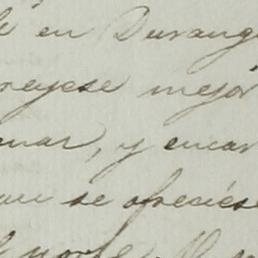 é en Durang
reyese mejor
nar, y encar
au se ofrecies